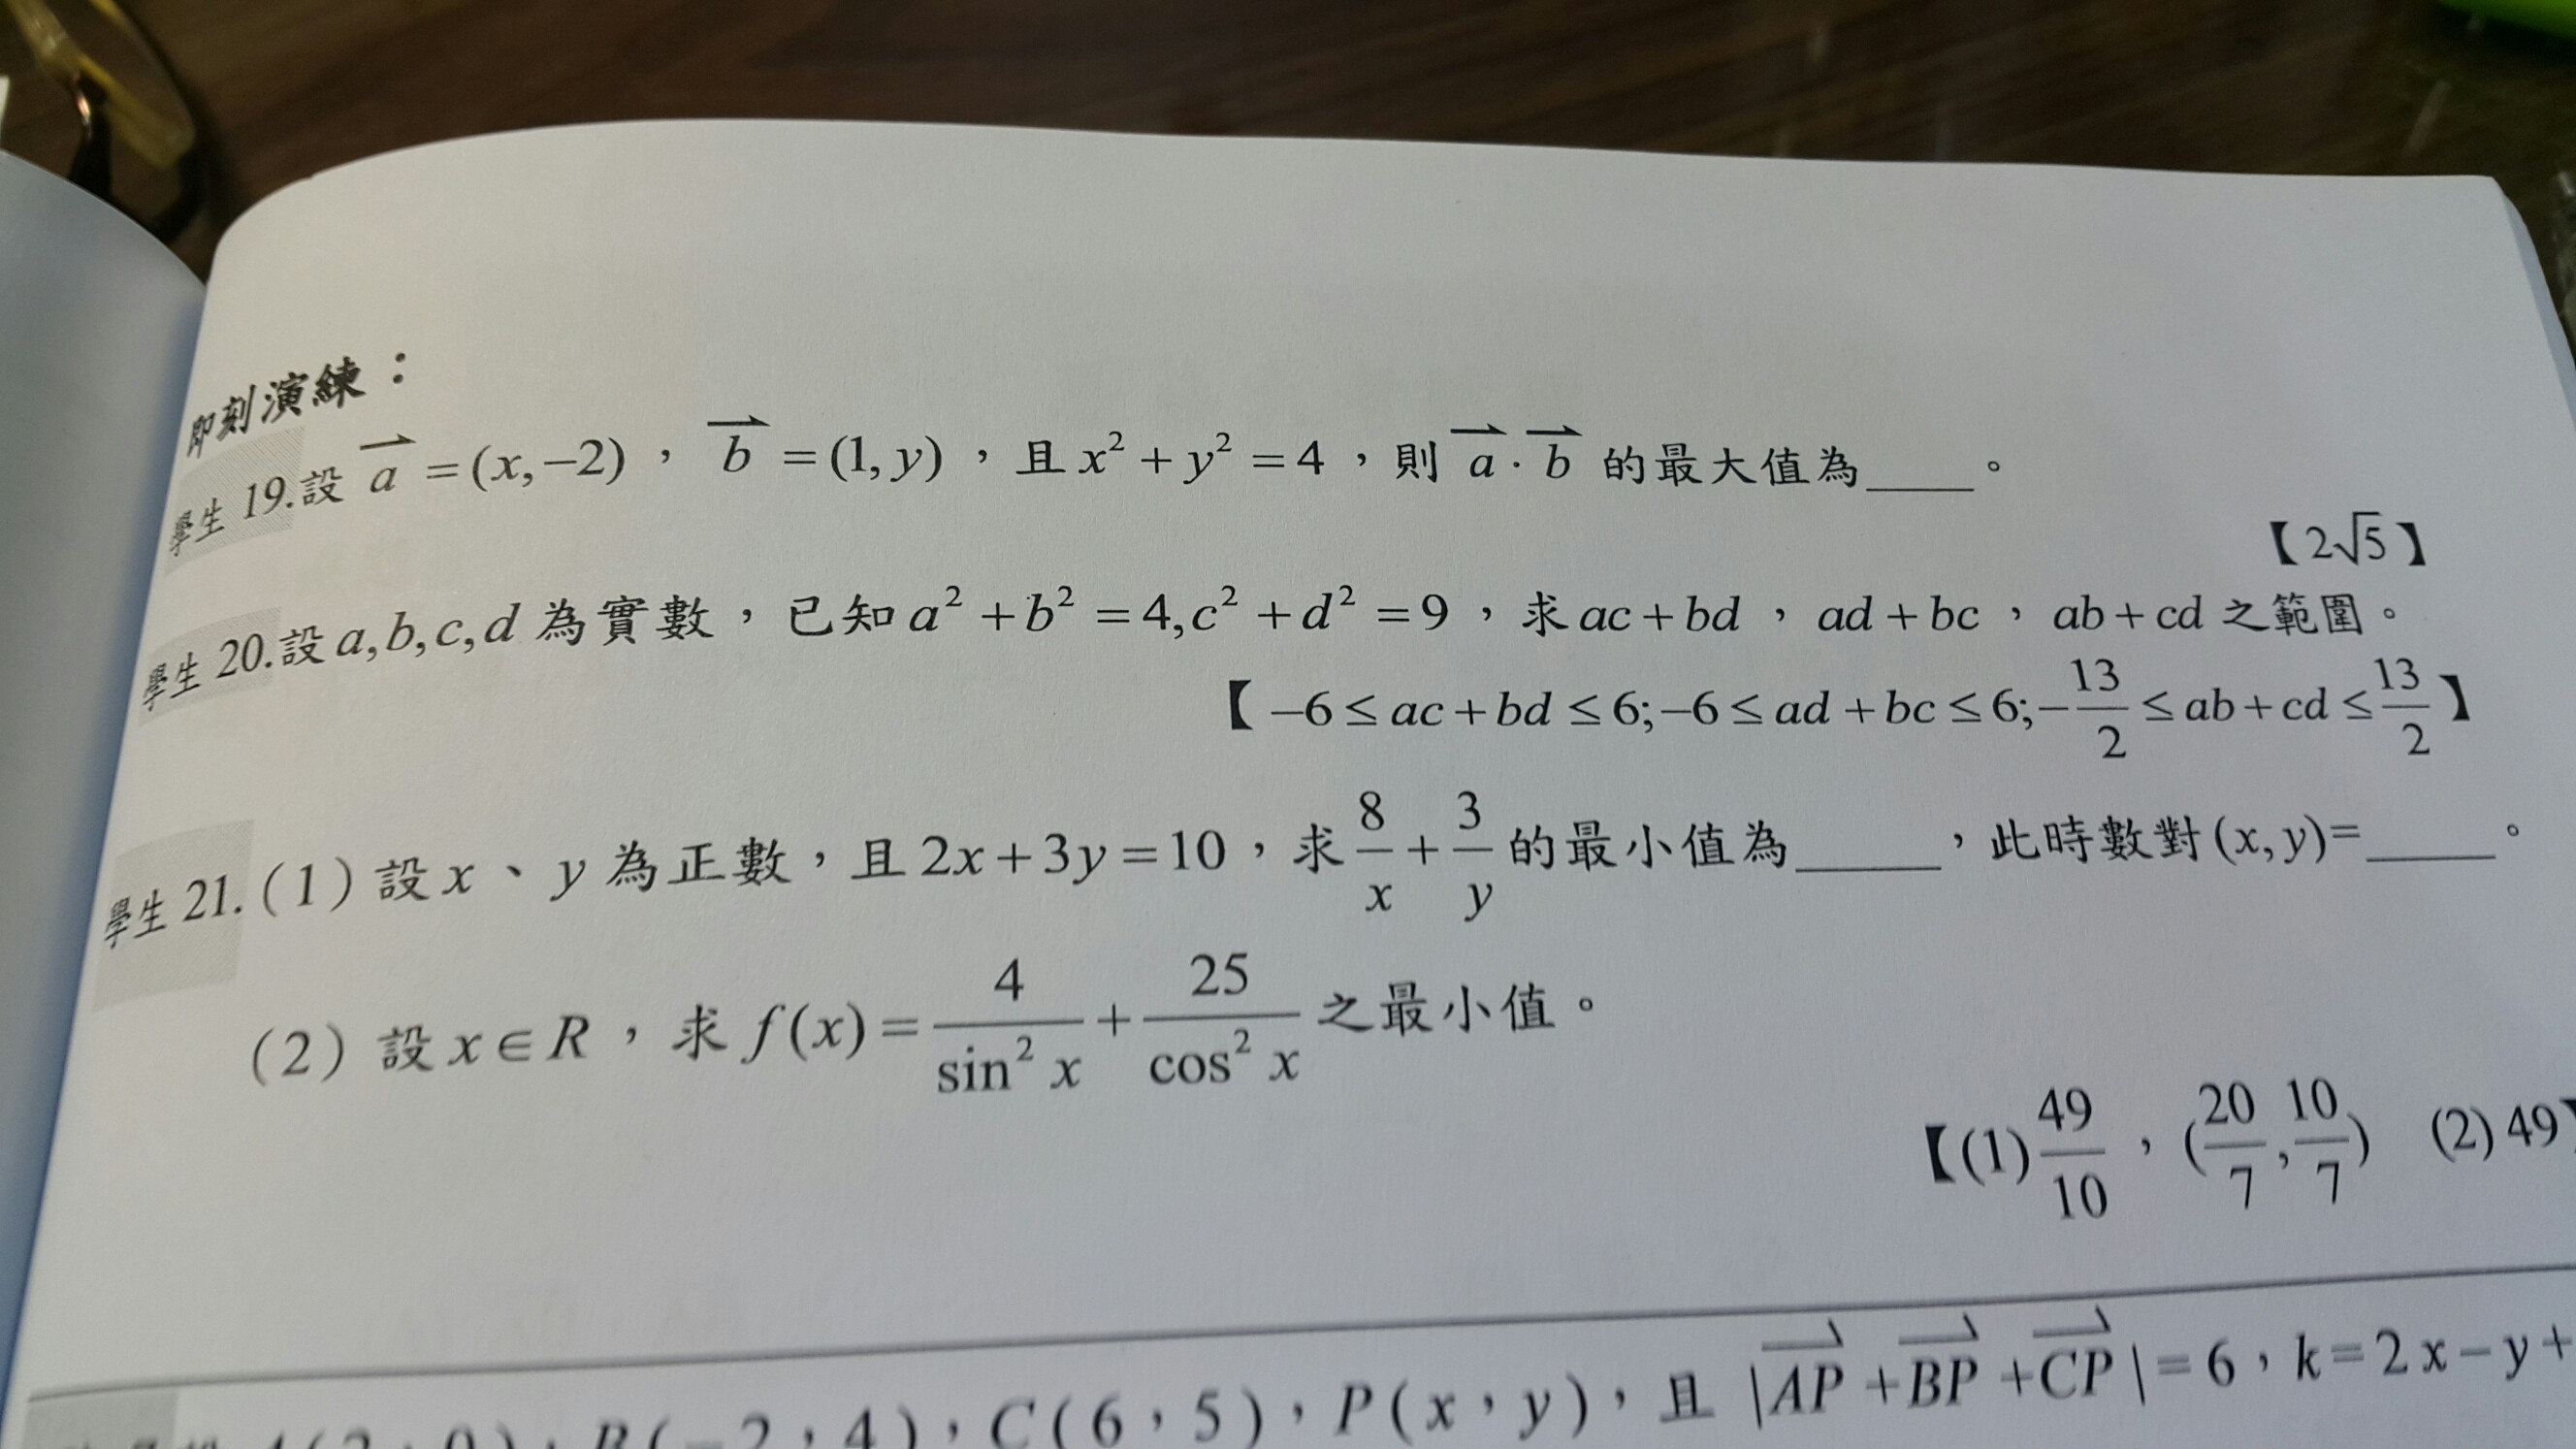 即刻演練：
學生19.設 $\overrightarrow{a}=(x,-2)$，$\overrightarrow{b}=(1,y)$，且 $x^2+y^2=4$，則 $\overrightarrow{a}\cdot\overrightarrow{b}$ 的最大值為____。
【$2\sqrt{5}$】
學生20.設 $a,b,c,d$ 為實數，已知 $a^2+b^2=4,c^2+d^2=9$，求 $ac+bd$，$ad+bc$，$ab+cd$ 之範圍。
【$-6\le ac+bd\le 6;-6\le ad+bc\le 6;-\frac{13}{2}\le ab+cd\le\frac{13}{2}$】
學生21.(1)設 $x$、$y$ 為正數，且 $2x+3y=10$，求 $\frac{8}{x}+\frac{3}{y}$ 的最小值為____，此時數對 $(x,y)=$____。
(2)設 $x\in R$，求 $f(x)=\frac{4}{\sin^2 x}+\frac{25}{\cos^2 x}$ 之最小值。
【(1)$\frac{49}{10}$，$(\frac{20}{7},\frac{10}{7})$ (2)49】
C(6，5)，P(x，y)，且 $|\overrightarrow{AP}+\overrightarrow{BP}+\overrightarrow{CP}|=6$，k=2x−y+